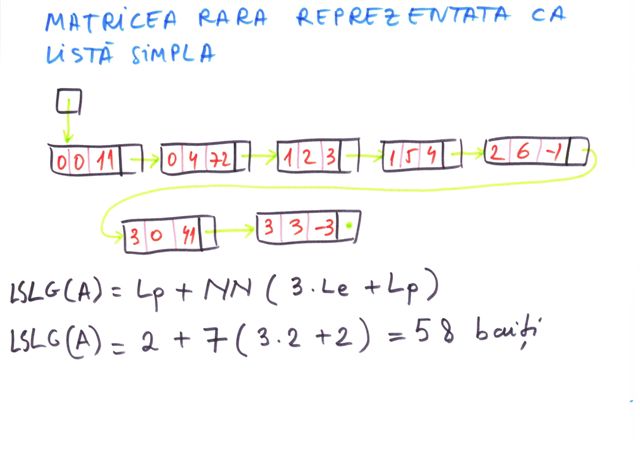 MATRICEA RARA REPREZENTATA CA
LISTĂ SIMPLA
0 0 11 0 4 72 1 2 3 1 5 4 2 6 -1
3 0 41 3 3 -3
LSLG(A) = Lp + NN ( 3 . Le + Lp )
LSLG(A) = 2 + 7 ( 3 . 2 + 2 ) = 58 baiți